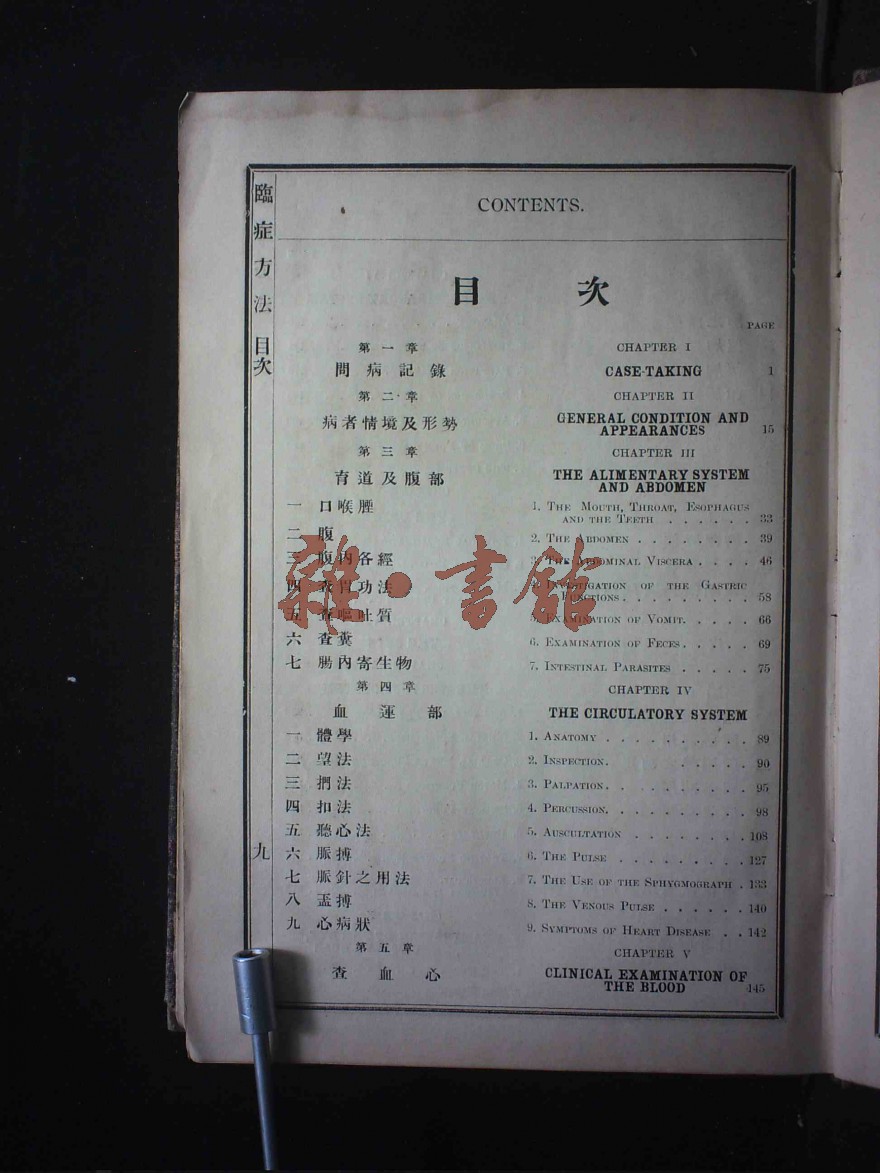 臨症方法 目次 九
CONTENTS.
目 次
PAGE
第一章 CHAPTER I
問病記錄 CASE-TAKING 1
第二章 CHAPTER II
病者情境及形勢 GENERAL CONDITION AND
APPEARANCES 15
第三章 CHAPTER III
育道及腹部 THE ALIMENTARY SYSTEM
AND ABDOMEN
一 口喉 1. THE MOUTH, THROAT, ESOPHAGUS
AND THE TEETH . . . . . . 33
二 腹 2. THE ABDOMEN . . . . . . . . . 39
三 腹內各經 3. THE ABDOMINAL VISCERA . . . . 46
四 查胃功法 4. INVESTIGATION OF THE GASTRIC
FUNCTIONS . . . . . . . . . 58
五 查嘔吐質 5. EXAMINATION OF VOMIT. . . . . 66
六 查糞 6. EXAMINATION OF FECES . . . . . 69
七 腸內寄生物 7. INTESTINAL PARASITES . . . . . 75
第四章 CHAPTER IV
血運部 THE CIRCULATORY SYSTEM
一 體學 1. ANATOMY . . . . . . . . . . 89
二 望法 2. INSPECTION. . . . . . 90
三 捫法 3. PALPATION. . . . . . . . . . 95
四 扣法 4. PERCUSSION. . . . . . . . . . 98
五 聽心法 5. AUSCULTATION . . . . . . . . 108
六 脈搏 6. THE PULSE . . . . . . . . . 127
七 脈針之用法 7. THE USE OF THE SPHYGMOGRAPH . 133
八 搏 8. THE VENOUS PULSE . . . . . . 140
九 心病狀 9. SYMPTOMS OF HEART DISEASE . . 142
第五章 CHAPTER V
查血心 CLINICAL EXAMINATION OF
THE BLOOD 145
雜·書館